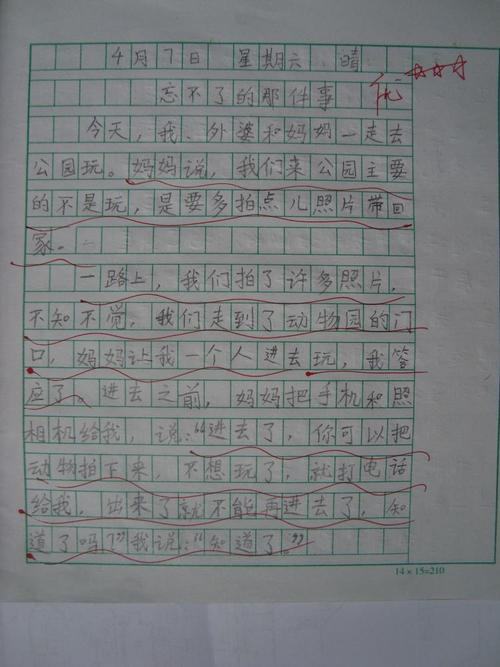 4月7日 星期六 晴
忘不了的那件事 优
今天，我、外婆和妈妈一走去
公园玩。妈妈说，我们来公园主要
的不是玩，是要多拍点儿照片带回
家。
一路上，我们拍了许多照片，
不知不觉，我们走到了动物园的门
口，妈妈让我一个人进去玩，我答
应了。进去之前，妈妈把手机和照
相机给我，说：“进去了，你可以把
动物拍下来，不想玩了，就打电话
给我，出来了就不能再进去了，知
道了吗？”我说：“知道了。”
14×15=210